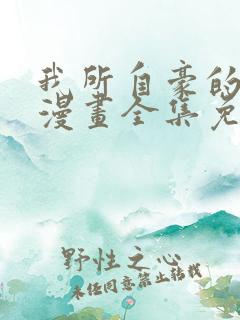 我所自豪的
漫畫全集免
野性之心
未经同意禁止转载